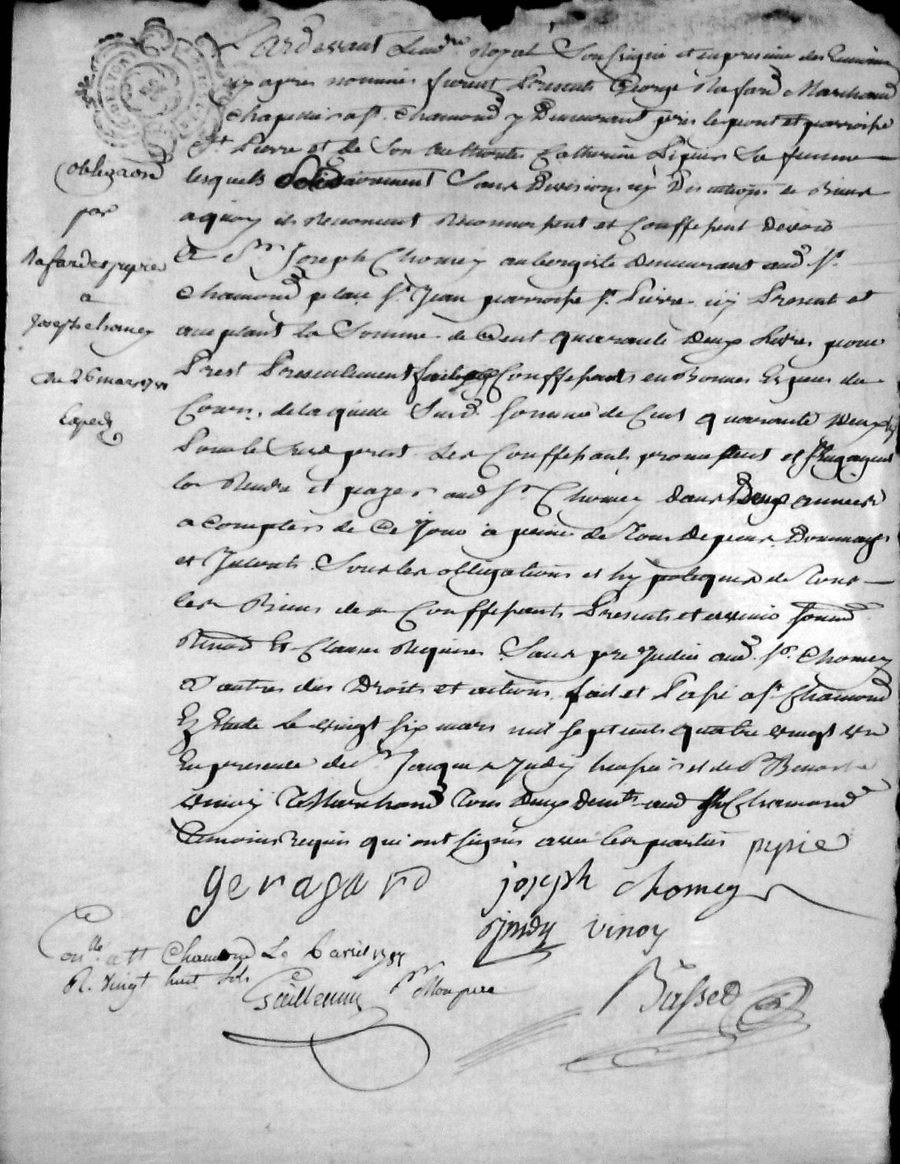 Pardevant Le nore Royal Soussigné et en presence des temoins
cy apres nommés furent Presents George Nafard Marchand
Chapelier a St. Chamond y Demeurant près le pont et parroisse
St Pierre et de Son authorité Catherine Pipier Sa femme
lesquels solidairement Sans Division ny Discution de Biens
a quoy ils Renoncent Reconnoissent et Confessent devoir
A Sr. Joseph Chomey aubergiste demeurant aud. St.
Chamond place St Jean parroisse St. Pierre icy Present et
acceptant la Somme de Cent quarante Deux Livres pour
Prest Presentement fait Confessants en Bonnes Especes du
Cours, de laquelle Susd. Somme de Cent quarante Deux
Pour le Susd prest Les Confessants promettent et S'engagent
la Rendre et payer aud Sr. Chomey dans Deux années
a Compter de Ce Jour a peine de Tous Depens Dommages
et Interets Sous les obligations et hypoteques de Tous
les Biens des Confessants Presents et avenir
Renond Et Clauses Requises Sans prejudice aud. Sr. Chomey
D'autres dus Droits et actions, fait et Passé a St. Chamond
Ez Etude Le vingt six mars mil sept cents quatre vingt
En presence de Sr Jacques Judy et de Sr Benoist
Vinoy Marchand Tous Deux Demts aud St Chamond
Temoins Requis qui ont Signés avec les parties pipie
obligaon
par
Nafard et pipie
a
Joseph chomey
du 26 mars
Expedié
ge nafard joseph Chomey
Judy vinoy
Conlle a St Chamond Le 6 avril
R. vingt huit sols
Guillemin Pr Mr
Basset